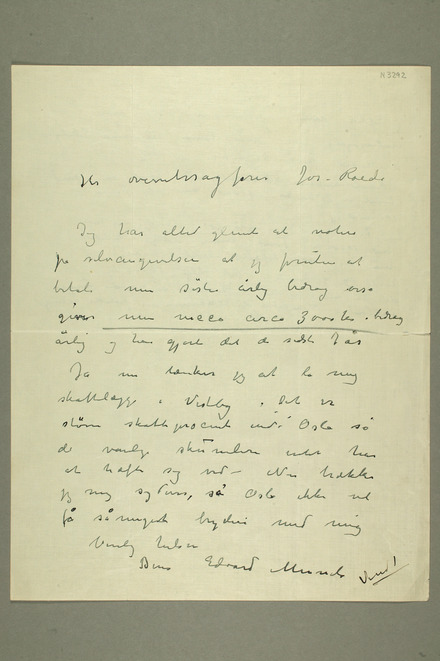 N 3292
Hr overretssagfører Jos. Roede
Jeg har altid glemt at notere
på selvangivelsen at jg foruten at
betale min søster årlig bidrag også
giver min niece circa 3000 kr. bidrag
årlig og har gjort det de sidste 7 år
Ja nu tænker jg at la mig
skattlægge i Vestby. Det er
større skatteprocent end i Oslo så
de vanlige skumlere intet har
at hæfte sig ved – Nu trækker
jg mig sydover, så Oslo ikke vil
få så meget bryderi med mig
Venlig hilsen
Deres Edvard Munch
Vend!